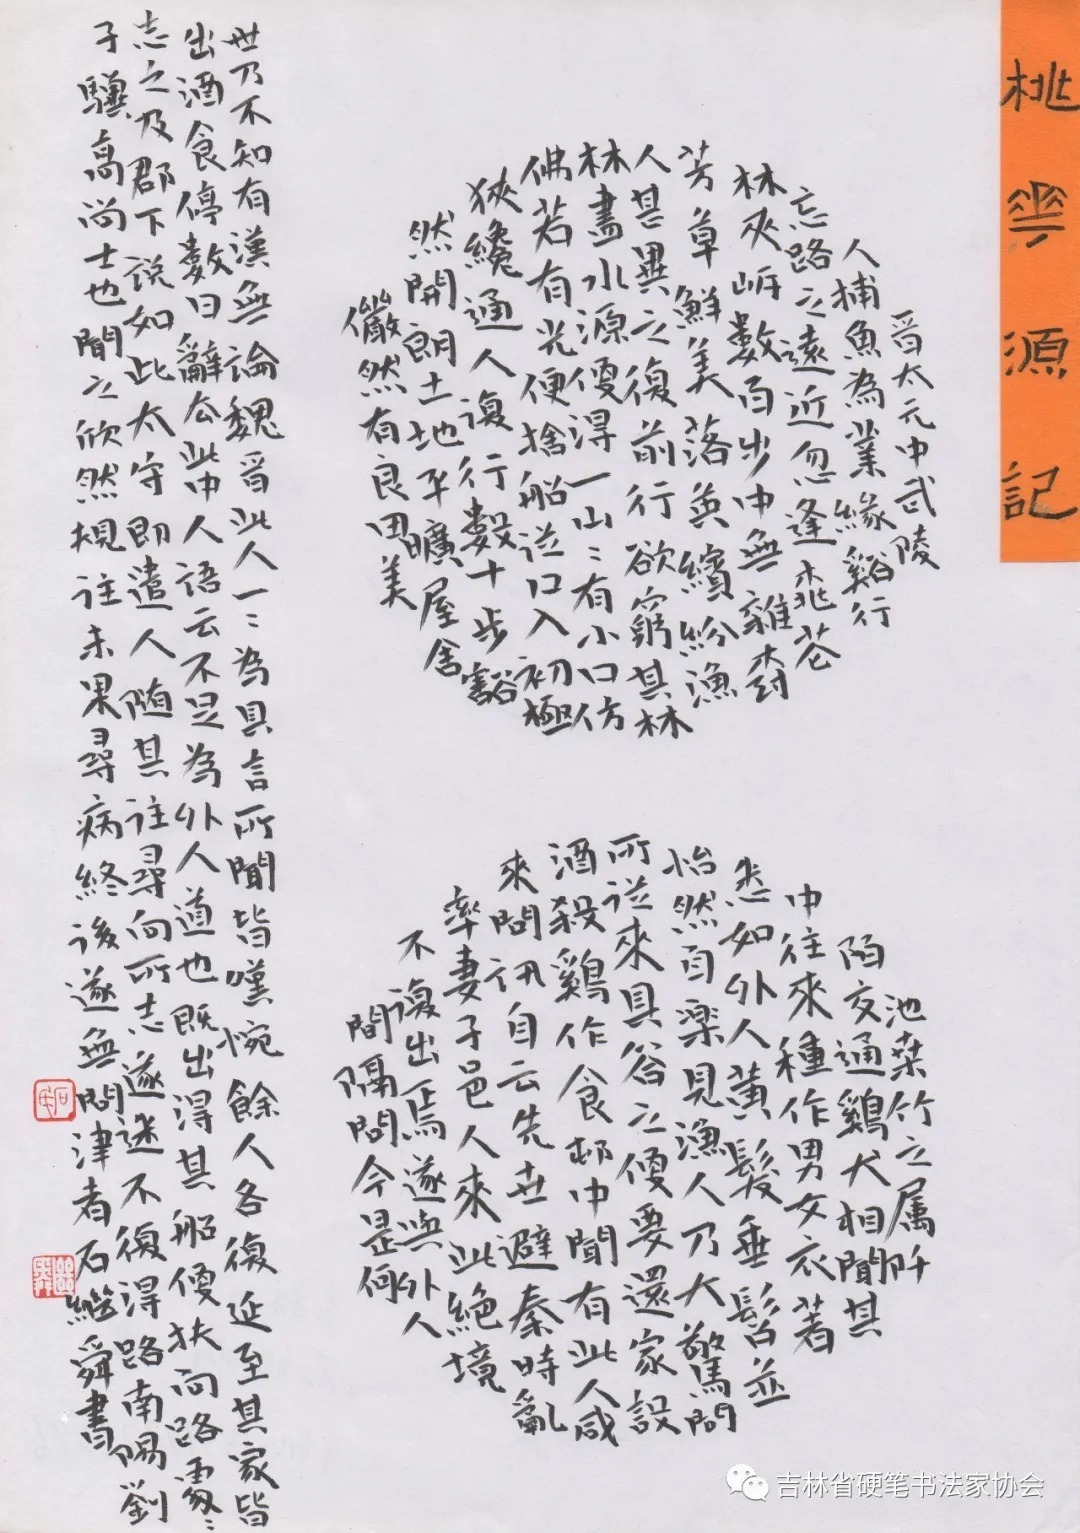 桃花源記
晋太元中武陵
人捕魚為業緣谿行
忘路之遠近忽逢桃花
林夾岸數百步中無雜樹
芳草鮮美落英繽紛漁
人甚異之復前行欲窮其林
林盡水源便得一山〻有小口仿
佛若有光便捨船從口入初極
狹纔通人復行數十步豁
然開朗土地平曠屋舍
儼然有良田美
池桒竹之属阡
陌交通鷄犬相聞其
中往來種作男女衣著
悉如外人黄髮垂髫並
怡然自樂見漁人乃大驚問
所從來具答之便要還家設
酒殺鷄作食邨中聞有此人咸
來問訊自云先世避秦時亂
率妻子邑人來此絶境
不復出焉遂與外人
間隔問今是何
世乃不知有漢無論魏晋此人一〻為具言所聞皆嘆惋餘人各復延至其家皆
出酒食停數日辭去此中人語云不足為外人道也既出得其船便扶向路處〻
志之及郡下説如此太守即遣人随其往尋向所志遂迷不復得路南陽劉
子驥高尚士也聞之欣然規往未果尋病終後遂無問津者石繼舜書
吉林省硬笔书法家协会